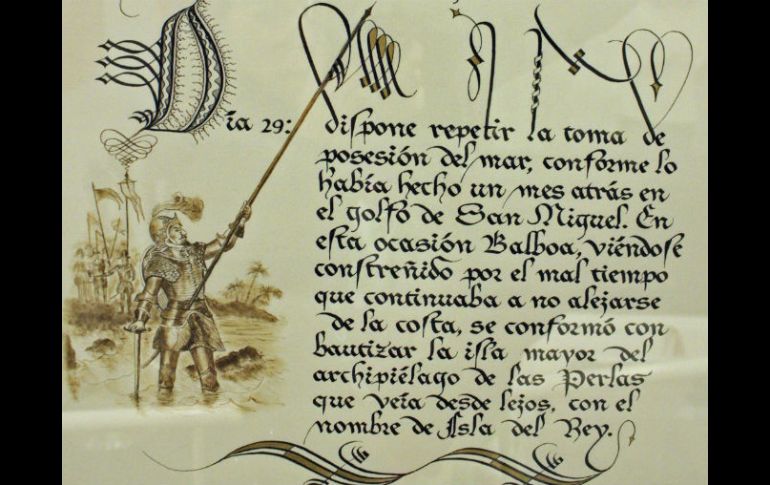 Día 29: dispone repetir la toma de
posesión del mar, conforme lo
había hecho un mes atrás en
el golfo de San Miguel. En
esta ocasión Balboa, viéndose
constreñido por el mal tiempo
que continuaba a no alejarse
de la costa, se conformó con
bautizar la isla mayor del
archipiélago de las Perlas
que veía desde lejos, con el
nombre de Isla del Rey.